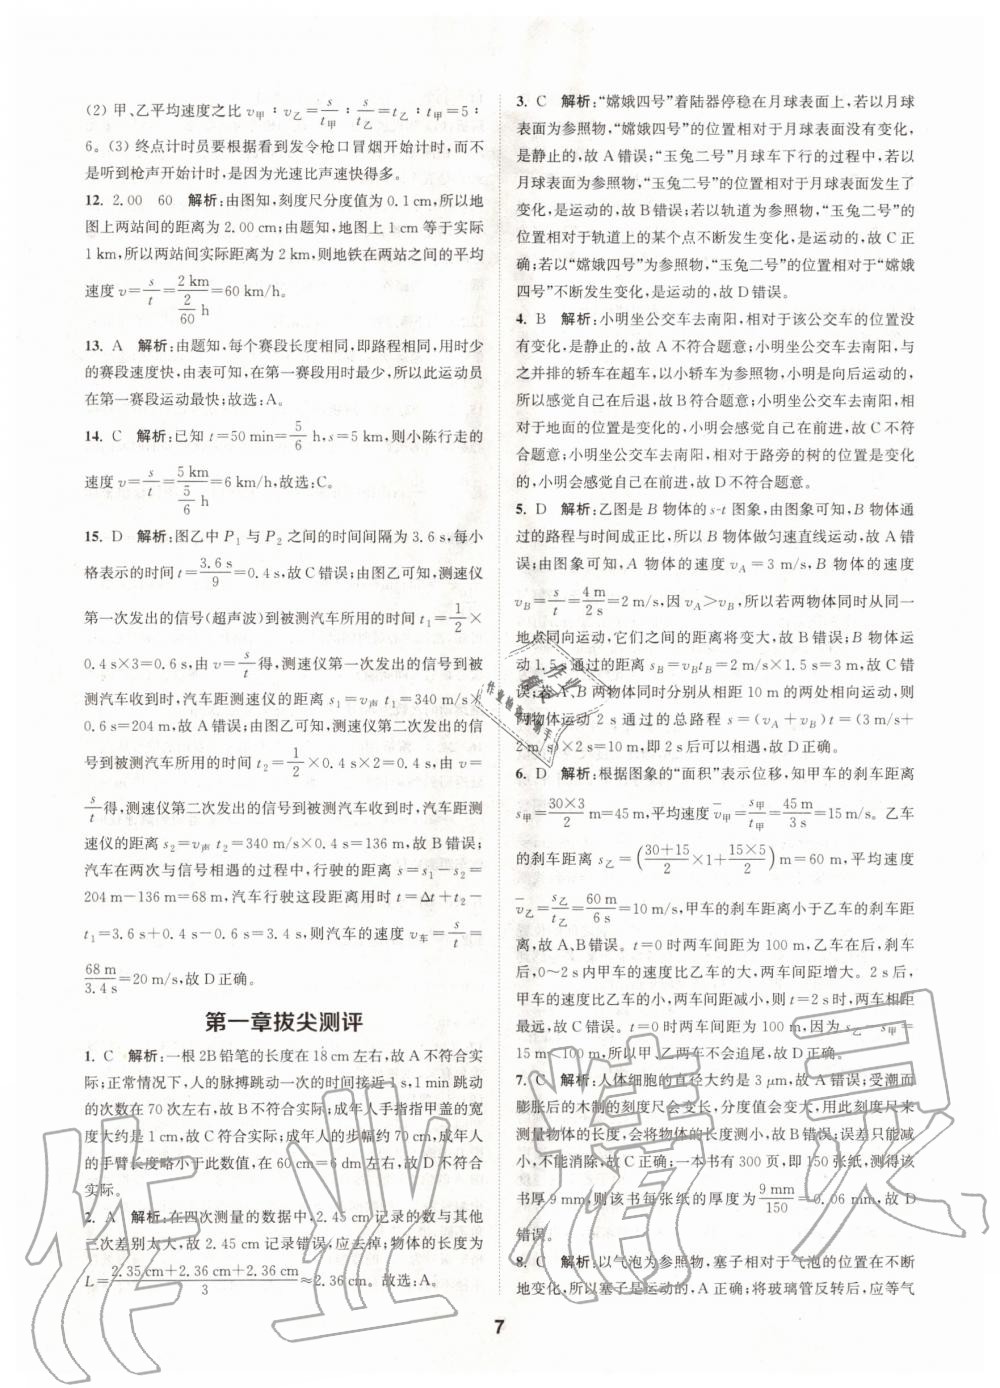 (2) 甲、乙平均速度之比 v甲∶v乙=s/t甲∶s/t乙=t乙∶t甲=5∶
6。(3) 终点计时员要根据看到发令枪口冒烟开始计时,而不
是听到枪声开始计时,是因为光速比声速快得多。
12. 2.00 60 解析:由图知,刻度尺分度值为 0.1 cm,所以地
图上两站间的距离为 2.00 cm;由题知,地图上 1 cm 等于实际
1 km,所以两站间实际距离为 2 km,则地铁在两站之间的平均
速度 v=s/t=2 km/(2/60 h)=60 km/h。
13. A 解析:由题知,每个赛段长度相同,即路程相同,用时少
的赛段速度快,由表可知,在第一赛段用时最少,所以此运动员
在第一赛段运动最快;故选:A。
14. C 解析:已知 t=50 min=5/6 h,s=5 km,则小陈行走的
速度 v=s/t=5 km/(5/6 h)=6 km/h,故选:C。
15. D 解析:图乙中 P1 与 P2 之间的时间间隔为 3.6 s,每小
格表示的时间 t=3.6 s/9=0.4 s,故 C 错误;由图乙可知,测速仪
第一次发出的信号(超声波)到被测汽车所用的时间 t1=1/2×
0.4 s×3=0.6 s,由 v=s/t得,测速仪第一次发出的信号到被
测汽车收到时,汽车距测速仪的距离 s1=v声 t1=340 m/s×
0.6 s=204 m,故 A 错误;由图乙可知,测速仪第二次发出的信
号到被测汽车所用的时间 t2=1/2×0.4 s×2=0.4 s,由 v=
s/t得,测速仪第二次发出的信号到被测汽车收到时,汽车距测
速仪的距离 s2=v声 t2=340 m/s×0.4 s=136 m,故 B 错误;
汽车在两次与信号相遇的过程中,行驶的距离 s=s1-s2=
204 m-136 m=68 m,汽车行驶这段距离用时 t=Δt+t2-
t1=3.6 s+0.4 s-0.6 s=3.4 s,则汽车的速度 v车=s/t=
68 m/3.4 s=20 m/s,故 D 正确。
第一章拔尖测评
1. C 解析:一根 2B 铅笔的长度在 18 cm 左右,故 A 不符合实
际;正常情况下,人的脉搏跳动一次的时间接近 1 s,1 min 跳动
的次数在 70 次左右,故 B 不符合实际;成年人手指指甲盖的宽
度大约是 1 cm,故 C 符合实际;成年人的步幅约 70 cm,成年人
的手臂长度略小于此数值,在 60 cm=6 dm 左右,故 D 不符合
实际。
2. A 解析:在四次测量的数据中,2.45 cm 记录的数与其他
三次差别太大,故 2.45 cm 记录错误,应去掉;物体的长度为
L=(2.35 cm+2.36 cm+2.36 cm)/3≈2.36 cm。故选:A。
3. C 解析:“嫦娥四号”着陆器停稳在月球表面上,若以月球
表面为参照物,“嫦娥四号”的位置相对于月球表面没有变化,
是静止的,故 A 错误;“玉兔二号”月球车下行的过程中,若以
月球表面为参照物,“玉兔二号”的位置相对于月球表面发生了
变化,是运动的,故 B 错误;若以轨道为参照物,“玉兔二号”的
位置相对于轨道上的某个点不断发生变化,是运动的,故 C 正
确;若以“嫦娥四号”为参照物,“玉兔二号”的位置相对于“嫦娥
四号”不断发生变化,是运动的,故 D 错误。
4. B 解析:小明坐公交车去南阳,相对于该公交车的位置没
有变化,是静止的,故 A 不符合题意;小明坐公交车去南阳,与
之并排的轿车在超车,以小轿车为参照物,小明是向后运动的,
所以小明感觉自己在后退,故 B 符合题意;小明坐公交车去南阳,相
对于地面的位置是变化的,小明会感觉自己在前进,故 C 不符
合题意;小明坐公交车去南阳,相对于路旁的树的位置是变化
的,小明会感觉自己在前进,故 D 不符合题意。
5. D 解析:乙图是 B 物体的 s-t 图象,由图象可知,B 物体通
过的路程与时间成正比,所以 B 物体做匀速直线运动,故 A 错
误;由图象可知,A 物体的速度 vA=3 m/s,B 物体的速度
vB=s/t=4 m/2 s=2 m/s,因 vA>vB,所以若两物体同时从同一
地点同向运动,它们之间的距离将变大,故 B 错误;B 物体运
动 1.5 s 通过的距离 sB=vBtB=2 m/s×1.5 s=3 m,故 C 错
误;若 A、B 两物体同时分别从相距 10 m 的两处相向运动,则
两物体运动 2 s 通过的总路程 s=(vA+vB)t=(3 m/s+
2 m/s)×2 s=10 m,即 2 s 后可以相遇,故 D 正确。
6. D 解析:根据图象的“面积”表示位移,知甲车的刹车距离
s甲=30×3/2 m=45 m,平均速度v̄甲=s甲/t甲=45 m/3 s=15 m/s。乙车
的刹车距离 s乙=((30+15)/2×1+15×5/2) m=60 m,平均速度
v̄乙=s乙/t乙=60 m/6 s=10 m/s,甲车的刹车距离小于乙车的刹车距
离,故 A、B 错误。t=0 时两车间距为 100 m,乙车在后,刹车
后,0～2 s 内甲车的速度比乙车的大,两车间距增大。2 s 后,
甲车的速度比乙车的小,两车间距减小,则 t=2 s 时,两车相距
最远,故 C 错误。t=0 时两车间距为 100 m,因为 s乙-s甲=
15 m<100 m,所以两车不会追尾,故 D 正确。
7. C 解析:人体细胞的直径大约是 3 μm,故 A 错误;受潮而
膨胀后的木制的刻度尺会变长,分度值会变大,用此刻度尺来
测量物体的长度,会将物体的长度测小,故 B 错误;误差只能减
小,不能消除,故 C 正确;一本书有 300 页,即 150 张纸,测得该
书厚 9 mm,则该书每张纸的厚度为9 mm/150=0.06 mm,故 D
错误。
8. C 解析:以气泡为参照物,塞子相对于气泡的位置在不断
地变化,所以塞子是运动的,A 正确;将玻璃管反转后,应等气
7
作业精灵